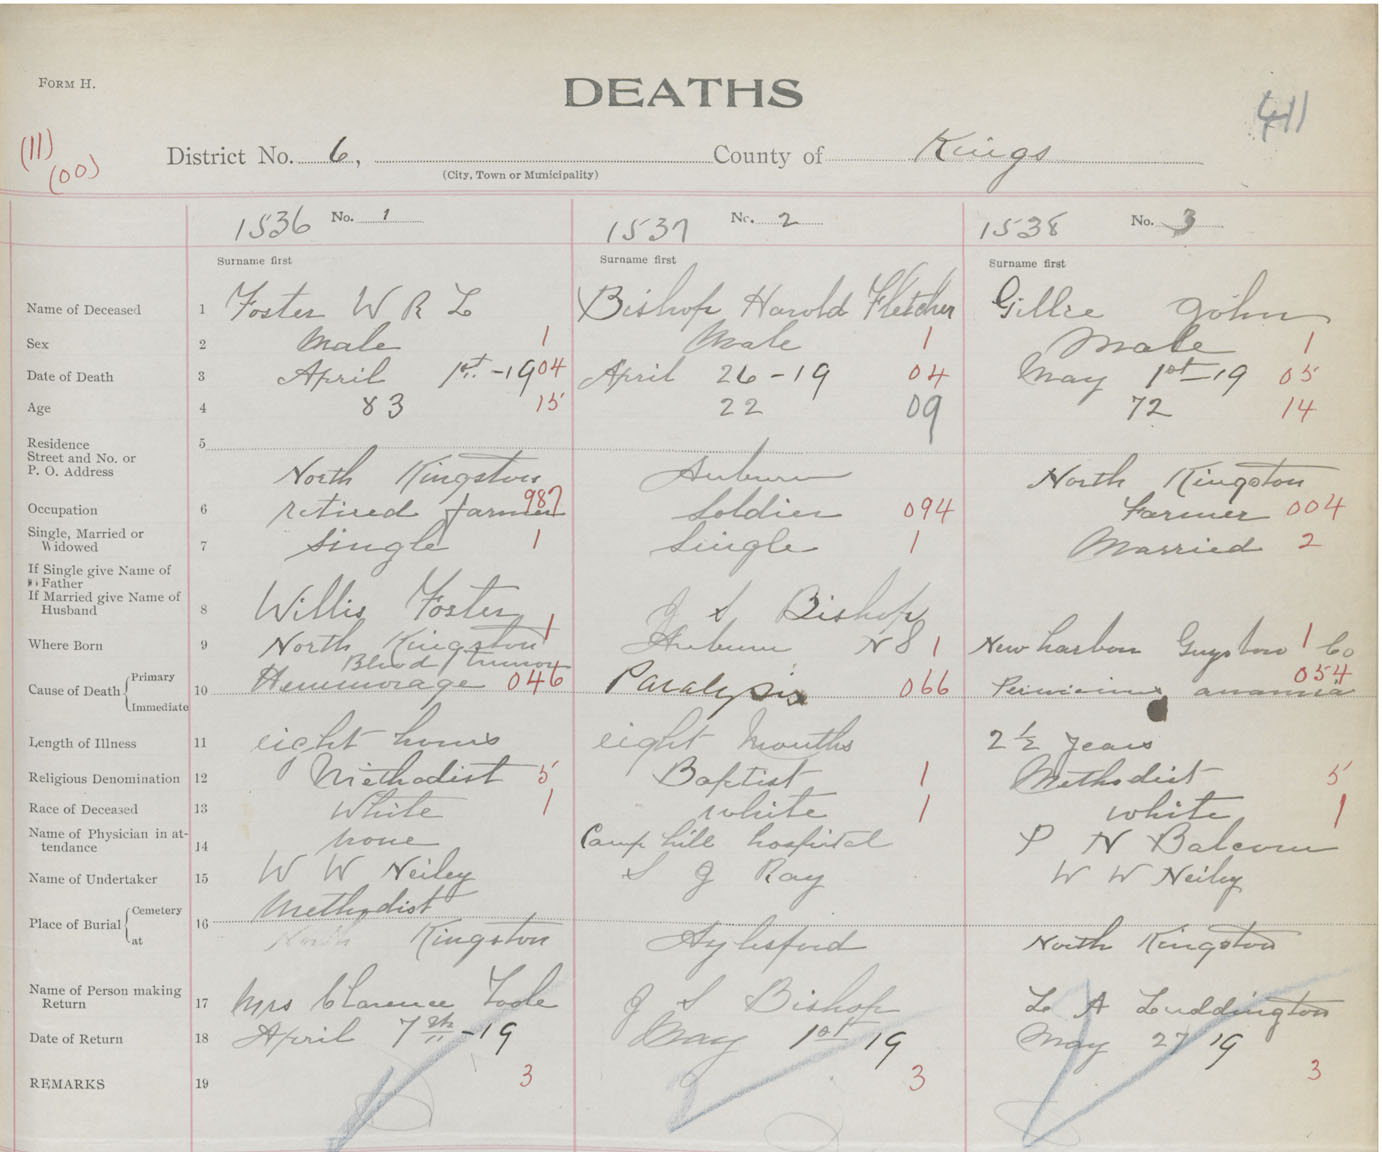 FORM H.
DEATHS
411
(11)
(00)
District No. 6, County of Kings
(City, Town or Municipality)
1536 No. 1 1537 No. 2 1538 No. 3
Surname first Surname first Surname first
Name of Deceased 1 Foster W R L Bishop Harold Fletcher Gillie John
Sex 2 Male 1 Male 1 Male 1
Date of Death 3 April 1st - 19 04 April 26 - 19 04 May 1st - 19 05
Age 4 83 15 22 09 72 14
Residence 5
Street and No. or
P. O. Address North Kingston Auburn North Kingston
Occupation 6 retired farmer 987 Soldier 094 Farmer 004
Single, Married or
Widowed 7 Single 1 Single 1 Married 2
If Single give Name of
Father
If Married give Name of
Husband 8 Willis Foster J S Bishop
Where Born 9 North Kingston 1 Auburn N S 1 New harbon Guysboro 1 Co
Blood tumor
Cause of Death { Primary 10 Hemmorage 046 Paralysis 066 Pernicious anamia 054
Immediate
Length of Illness 11 eight hours eight Months 2 1/2 years
Religious Denomination 12 Methodist 5 Baptist 1 Methodist 5
Race of Deceased 13 White 1 white 1 white 1
Name of Physician in at-
tendance 14 none Camp hill hospital P N Balcom
Name of Undertaker 15 W W Neiley S J Ray W W Neiley
Place of Burial { Cemetery 16 Methodist
at North Kingston Aylesford North Kingston
Name of Person making
Return 17 Mrs Clarence Toole J S Bishop L A Luddington
Date of Return 18 April 7th - 19 May 1st 19 May 27 19
REMARKS 19 3 3 3